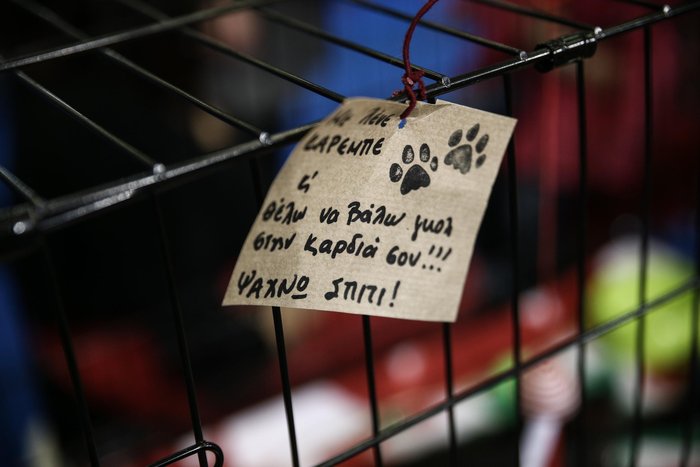 Με λένε
ΕΑΡΕΜΠΕ
ή
θέλω να βάλω γκολ
στην καρδιά σου!!!
ΨΑΧΝΩ ΣΠΙΤΙ!